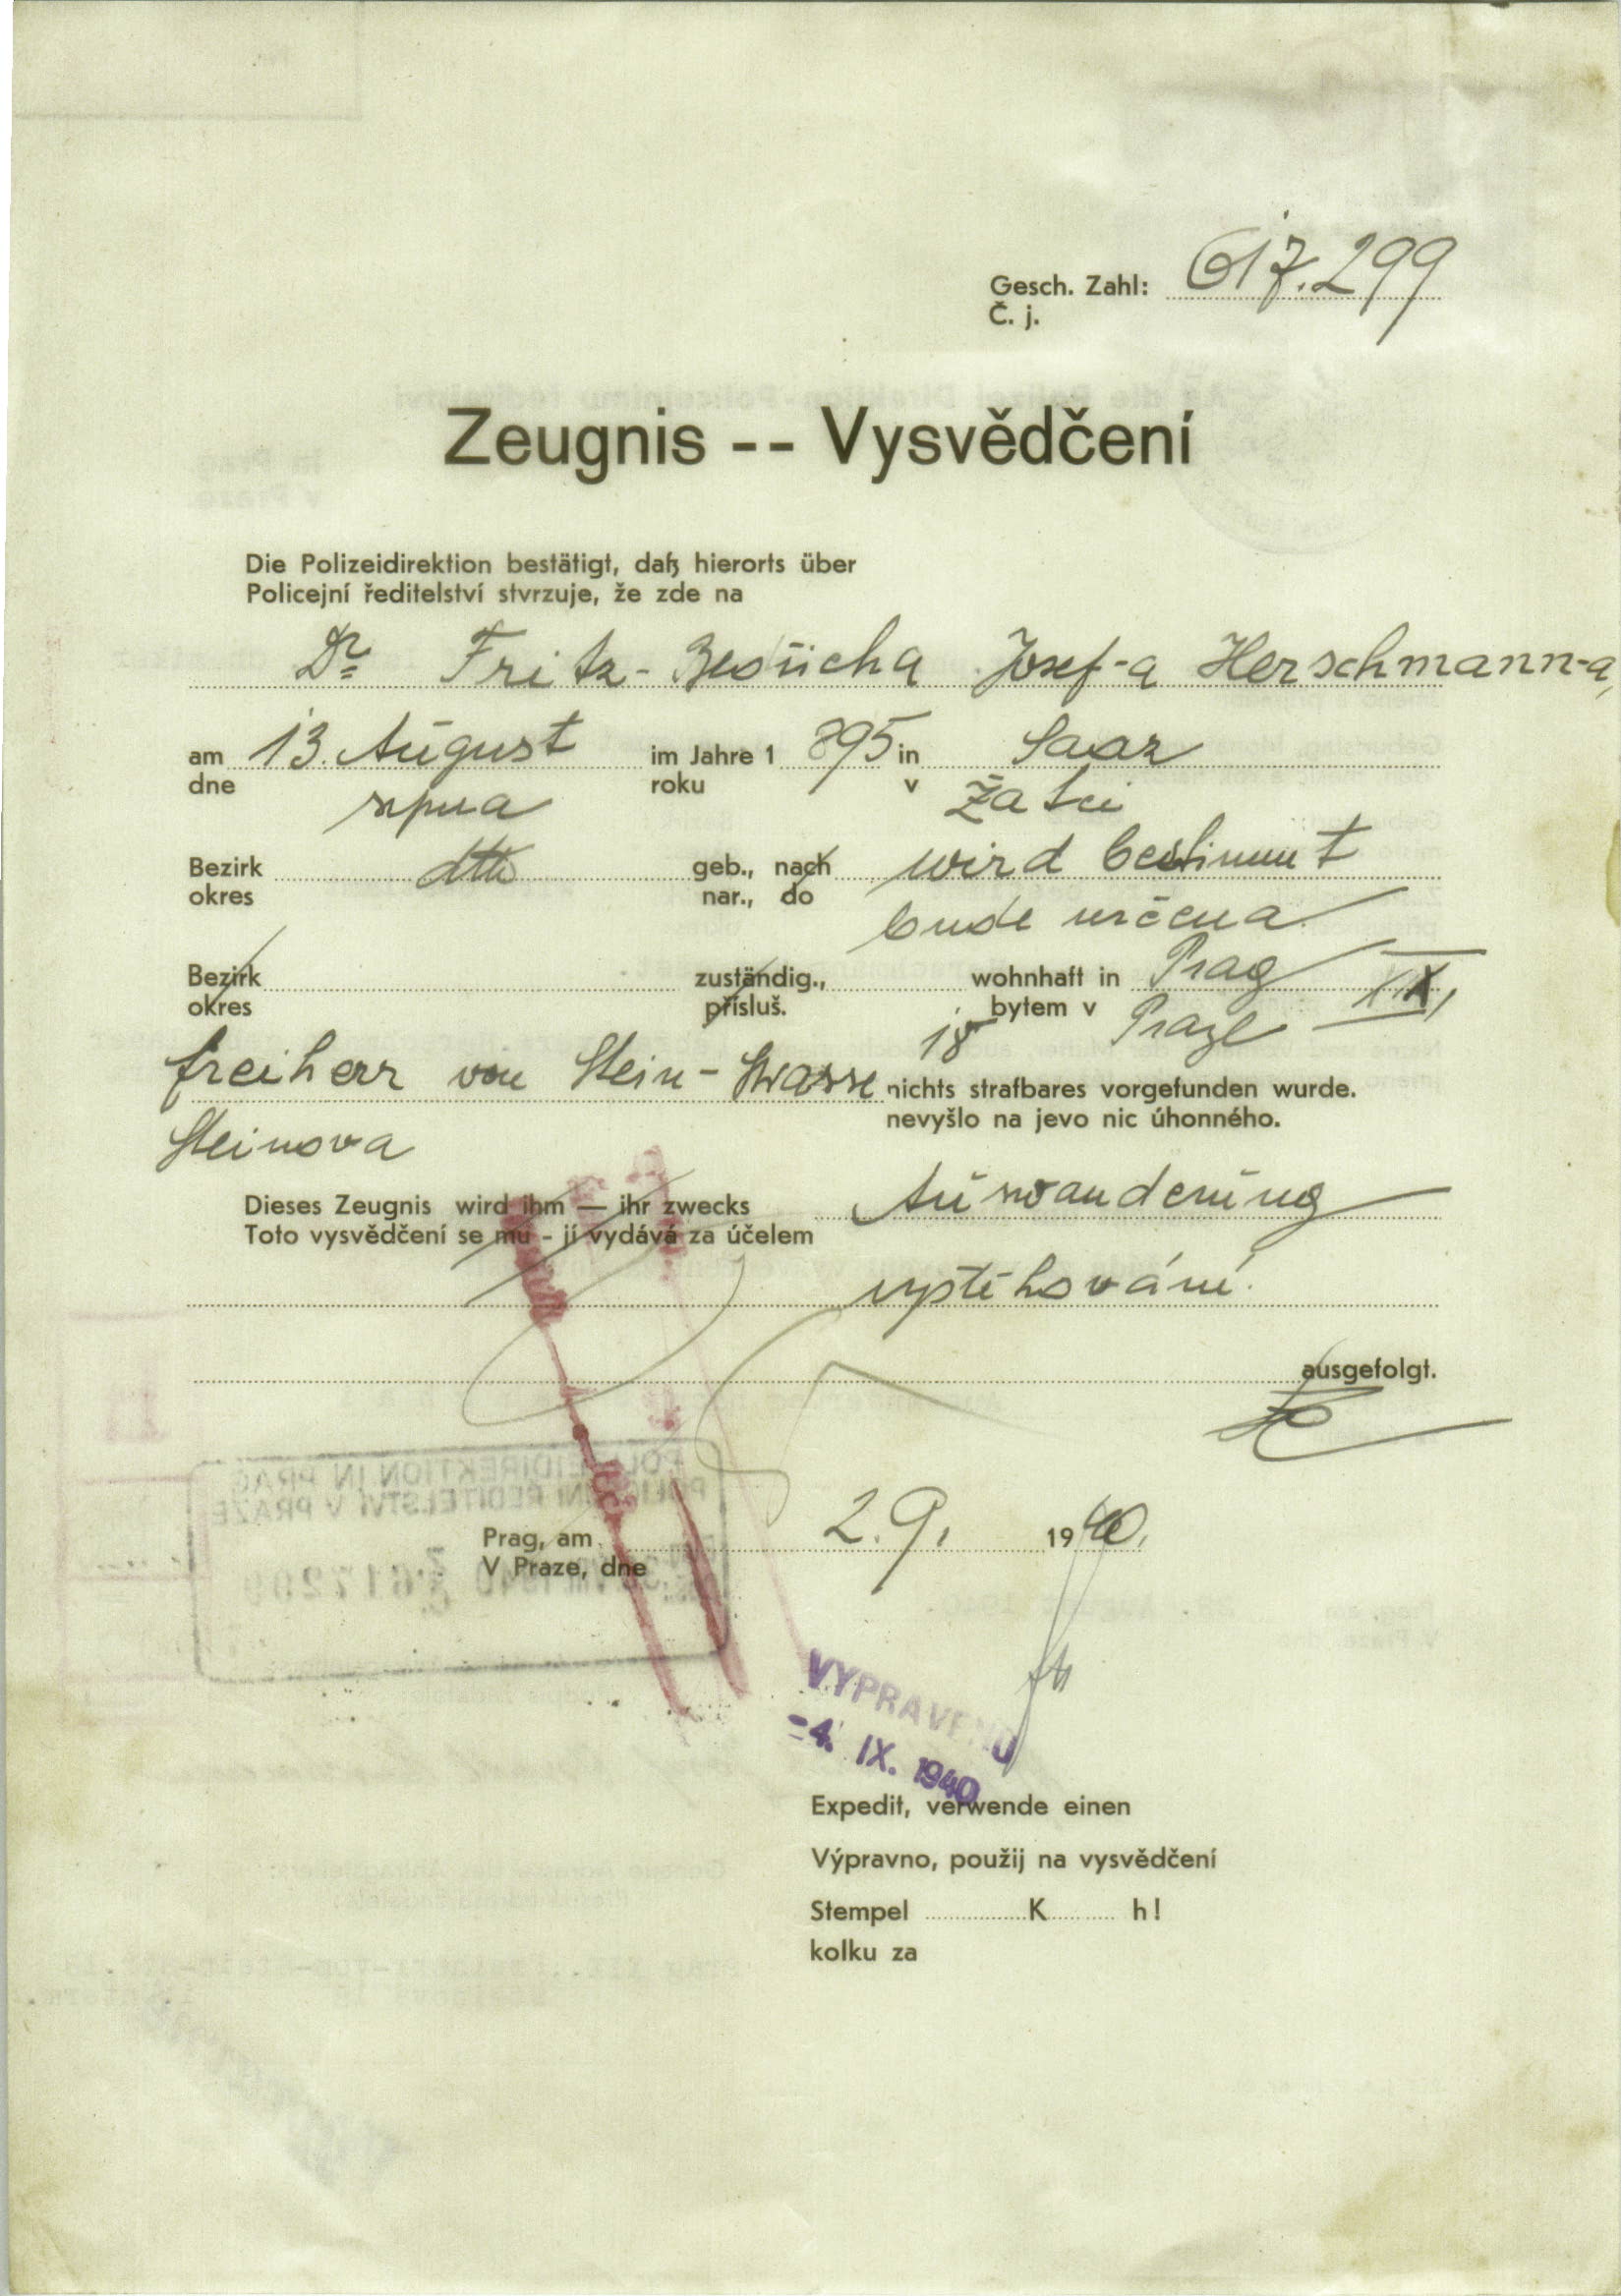 Gesch. Zahl: 617.299
Č. j.
Zeugnis -- Vysvědčení
Die Polizeidirektion bestätigt, daß hierorts über
Policejní ředitelství stvrzuje, že zde na
Dr Fritz- Josef-a Herschmann-a,
am 13. August im Jahre 1 895 in Saaz
dne srpna roku v Žatci
Bezirk dtto geb., nach wird bestimmt
okres nar., do bude určena
Bezirk zuständig., wohnhaft in Prag XIX,
okres přísluš. bytem v Praze
18
Freiherr von Stein-Strasse nichts strafbares vorgefunden wurde.
nevyšlo na jevo nic úhonného.
Steinova
Dieses Zeugnis wird ihm — ihr zwecks Auswanderung
Toto vysvědčení se mu - jí vydává za účelem
vystěhování.
ausgefolgt.
POLIZEIDIREKTION IN PRAG
POLICEJNÍ ŘEDITELSTVÍ V PRAZE
Prag, am 2. 9. 1940.
V Praze, dne
VYPRAVENO
-4. IX. 1940
Expedit, verwende einen
Výpravno, použij na vysvědčení
Stempel K h!
kolku za